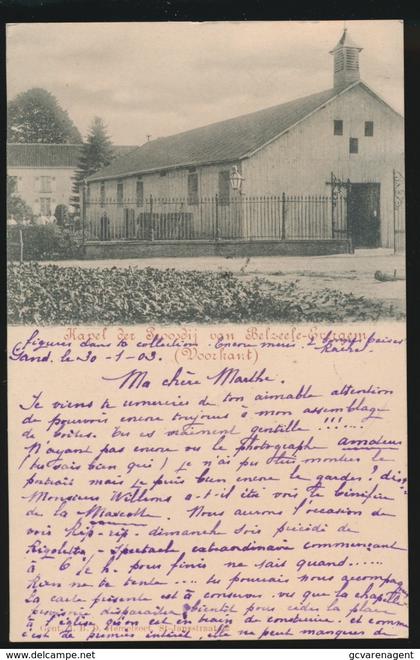 Kapel der Proosdij van Belzeele-Evergem
(Voorkant)
figurer dans ta collection. Encore merci & bons baisers
Rachel
Gand. le 30-1-03.
Ma chère Marthe.
Je viens te remercier de ton aimable attention
de pouvoir encore toujours à mon assemblage
de cartes. Tu es vraiment gentille !!!...
N'ayant pas encore vu le photograph amateur
(tu sais bien qui) je n'ai pu lui montrer le
portrait mais je puis bien encore le garder? dis,
Monsieur Willems a-t-il été voir le bénéfice
de la Mascotte. Nous aurons l'occasion de
voir Rip-rip. dimanche soir précédé de
Rigoletto. Spectacle extraordinaire commençant
à 6 ½ h. pour finir ne sait quand.....
Ran ne te tente .... tu pourrais nous accomp
la carte présente est à conserver. vu que la chapelle
disparaître bientôt pour céder la place
à l'église qu'on est en train de construire. et comme
c'est de premier intérêt elle ne peut manquer de
Gent, D. H. D. St-Jansstraat